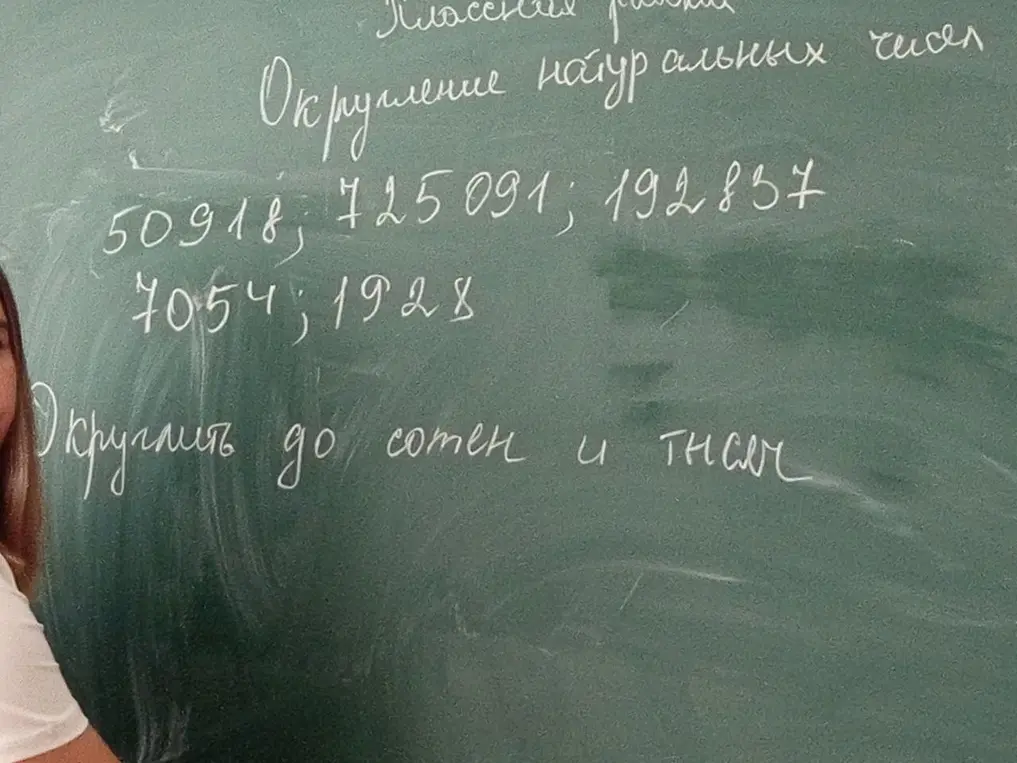 Классная работа
Округление натуральных чисел
50918; 725091; 192837
7054; 1928
Округлить до сотен и тысяч